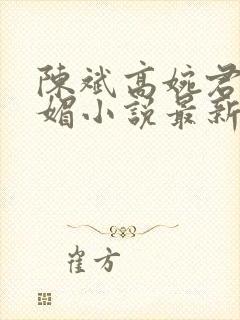 陳斌高婉君
媚小說最新
崔方